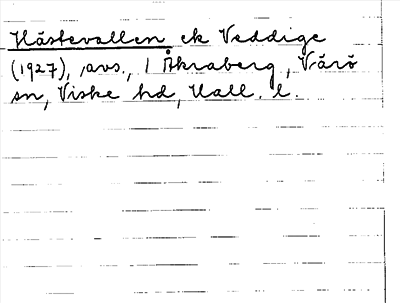 Hästevallen ek Veddige
(1927), avs., / Åkraberg, Värö
sn, Viske hd, Hall. l.